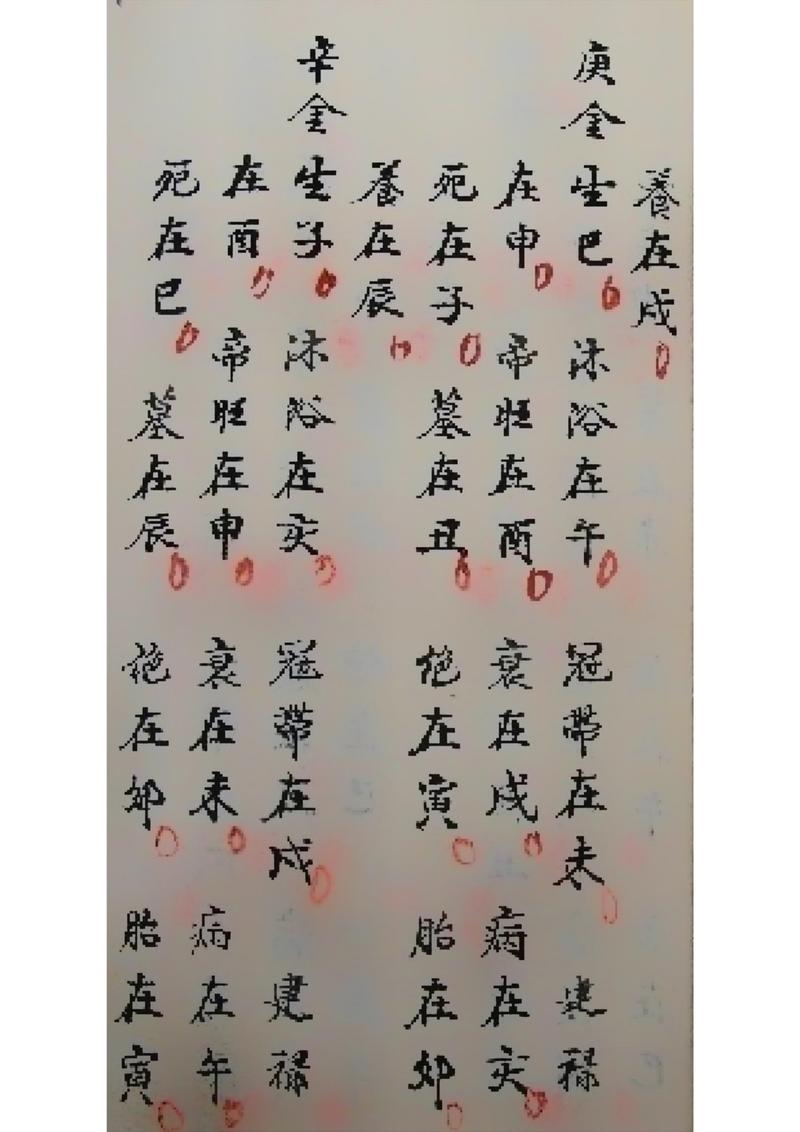 養在戌
庚金生巳 沐浴在午 冠帶在未 建禄
在申 帝旺在酉 衰在戌 病在亥
死在子 墓在丑 絶在寅 胎在卯
養在辰
辛金生子 沐浴在亥 冠帶在戌 建禄
在酉 帝旺在申 衰在未 病在午
死在巳 墓在辰 絶在卯 胎在寅